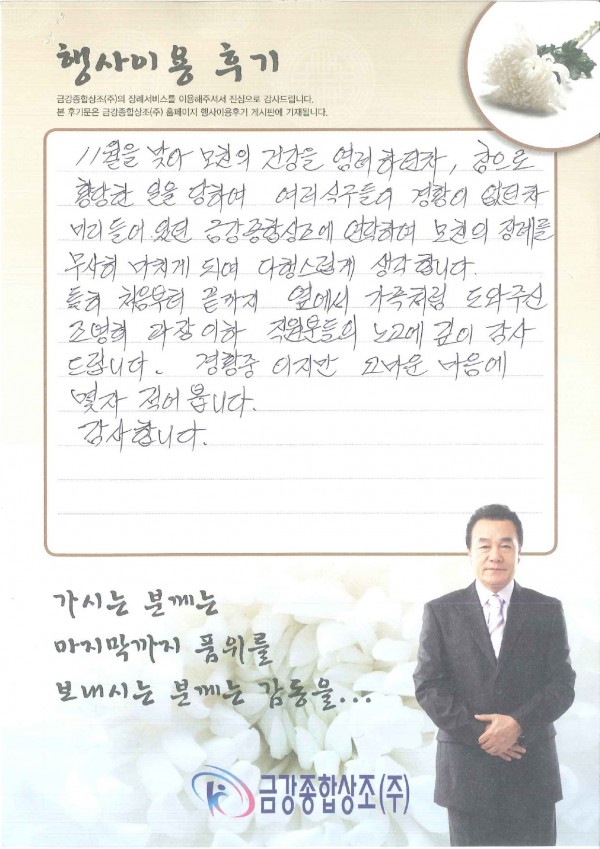 행사이용 후기
금강종합상조(주)의 장례서비스를 이용해주셔서 진심으로 감사드립니다.
본 후기문은 금강종합상조(주) 홈페이지 행사이용후기 게시판에 기재됩니다.
11월을 맞아 모친의 건강을 염려하던차, 참으로
황망한 일을 당하여 여러식구들이 경황이 없던차
미리 들어 있던 금강종합상조에 연락하여 모친의 장례를
무사히 마치게 되어 다행스럽게 생각합니다.
특히 처음부터 끝까지 옆에서 가족처럼 도와주신
조영희 과장 이하 직원분들의 노고에 깊이 감사
드립니다. 경황중 이지만 고마운 마음에
몇자 적어 봅니다.
감사합니다.
가시는 분께는
마지막까지 품위를
보내시는 분께는 감동을...
금강종합상조(주)